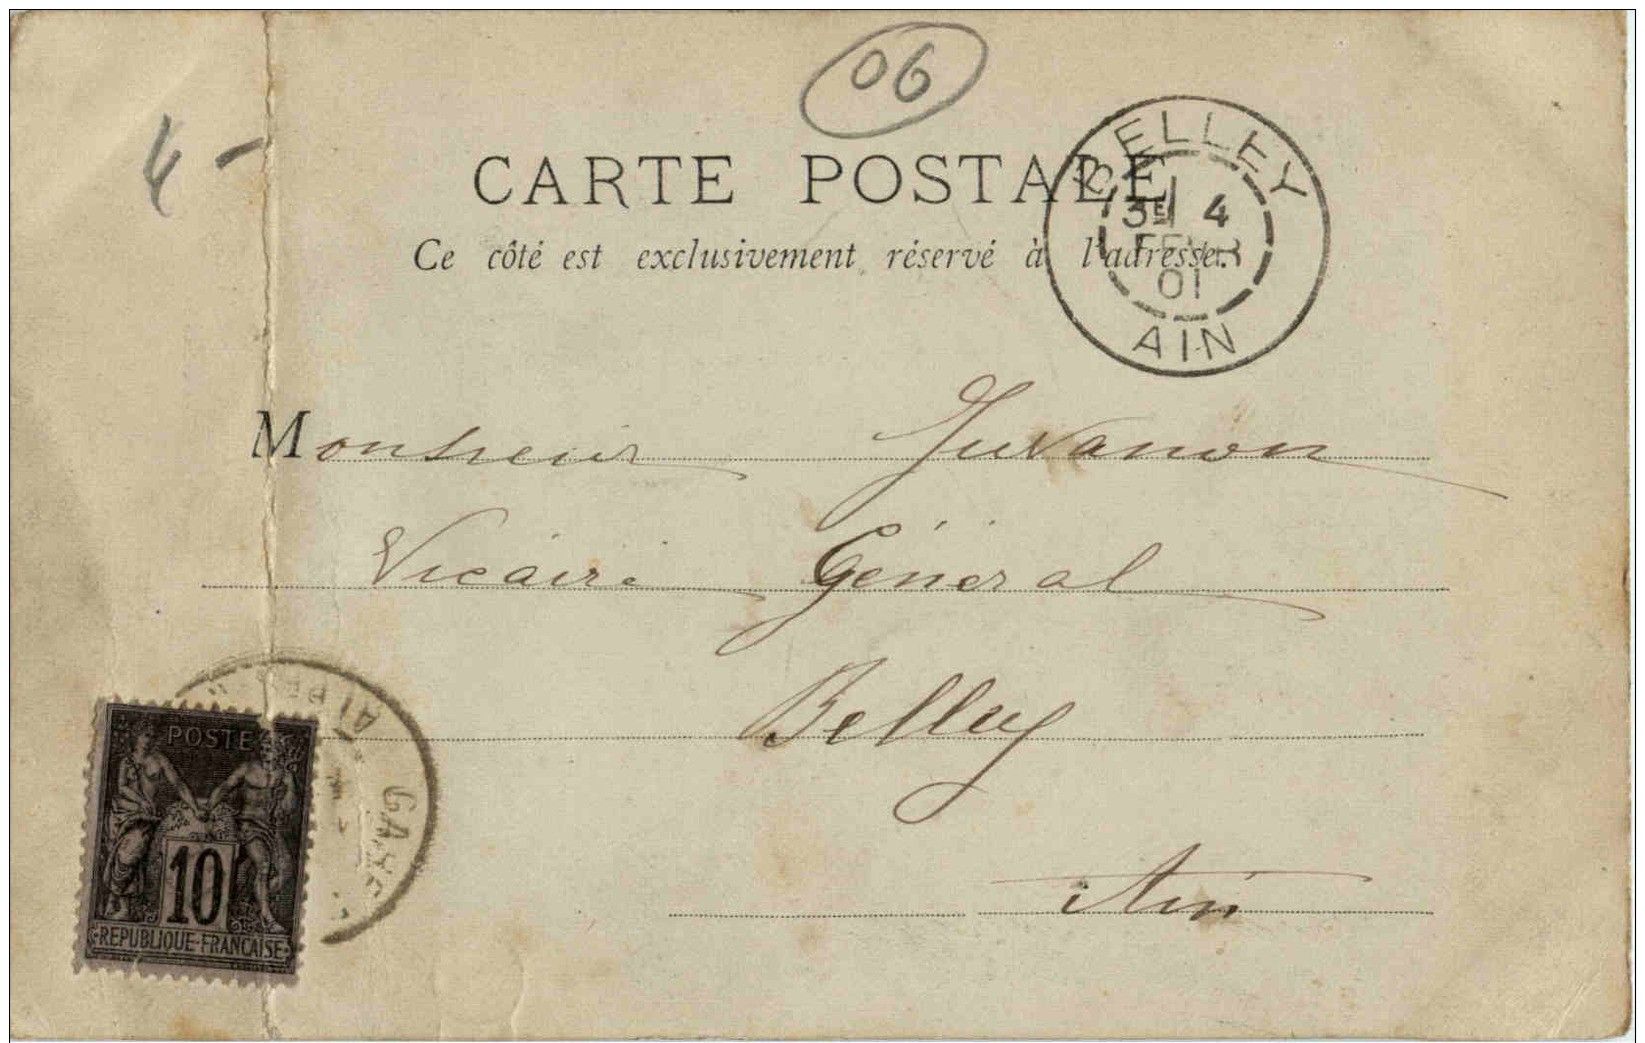 06
4 -
CARTE POSTALE
Ce côté est exclusivement réservé à l'adresse.
BELLEY
3E 4
FEVR
01
AIN
Monsieur Juvanon
Vicaire Général
Belley
Ain
POSTE
10
REPUBLIQUE-FRANCAISE